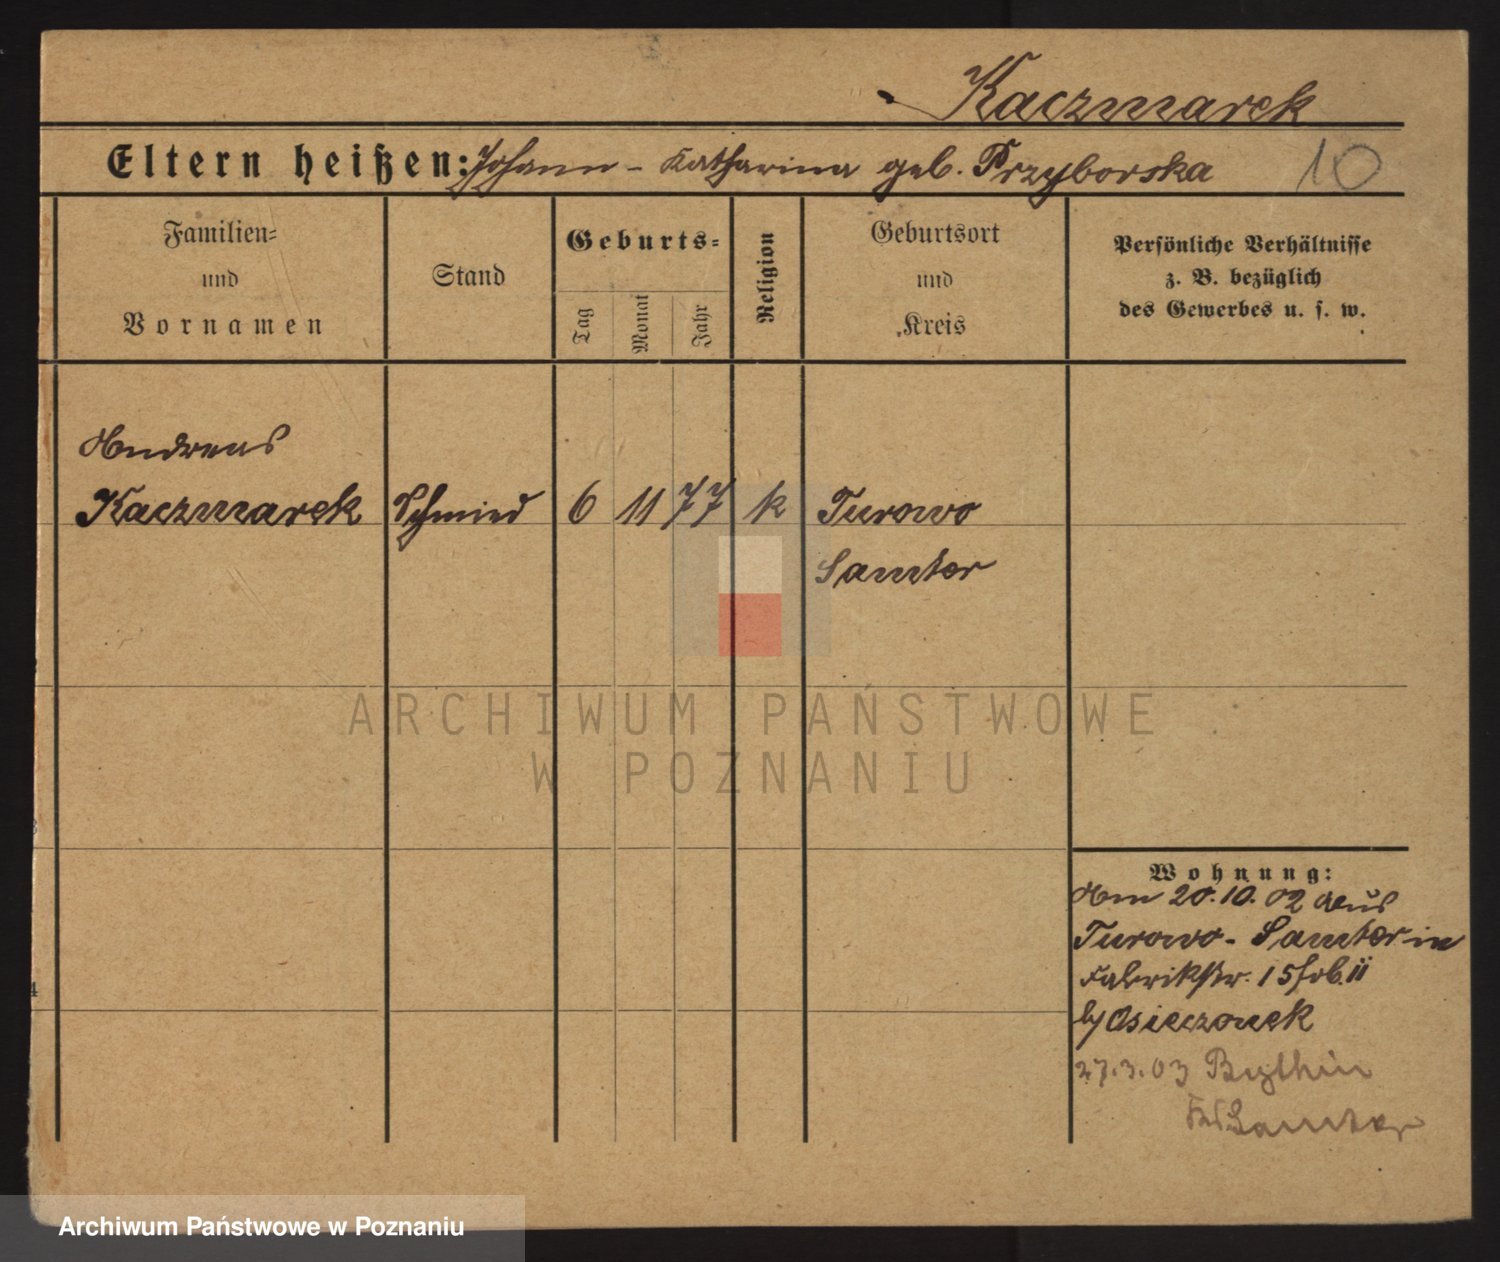 Kaczmarek
Eltern heißen: Johann - Katharina geb. Przyborska 10
Familien=
und
Vornamen
Stand
Geburts=
Tag
Monat
Jahr
Religion
Geburtsort
und
Kreis
Persönliche Verhältnisse
z. B. bezüglich
des Gewerbes u. s. w.
Andreas
Kaczmarek Schmied 6 11 77 k Turowo
Samter
ARCHIWUM PAŃSTWOWE
W POZNANIU
Wohnung:
Am 20.10.02 aus
Turowo - Samter in
Fabrikstr. 15 II
b/ Osieczonek
27.3.03 Bythin
Samter
4
Archiwum Państwowe w Poznaniu